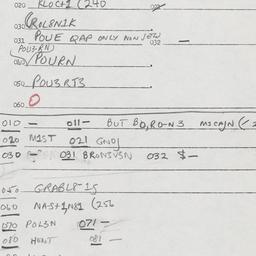 020 KLOC+1 (240
030 ROL8N1K
031 POUE QAP ONLY NON JEW 032 —
POU3RN)
040 POURN
050 POU3RT3
060 O
010 — 011 — BUT BO,RO-N3
020 M1ST 021 GNOJ
030 — 031 BRON3VSN 032 $—
050 GRABL8-1J
060 NA-S+1,N81 (256
070 POL3N 071 —
080 HENT 081 —